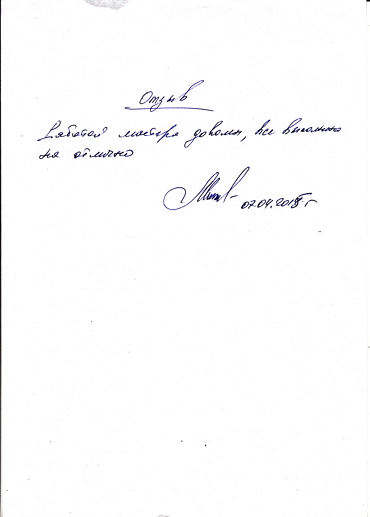 Отзыв
Работой мастера доволен, все выполнено
на отлично
07.04.2018 г